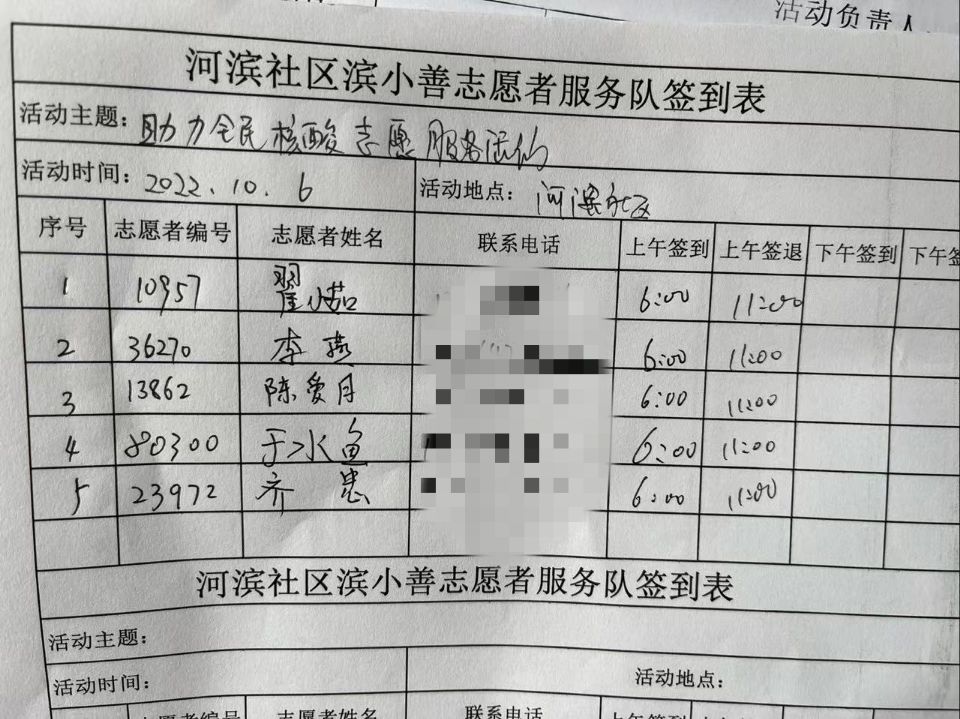 活动负责人
河滨社区滨小善志愿者服务队签到表
活动主题：助力全民核酸志愿服务活动
活动时间：2022.10.6 活动地点：河滨社区
序号 志愿者编号 志愿者姓名 联系电话 上午签到 上午签退 下午签到 下午签
1 10957 翟小茹 6:00 11:00
2 36270 李燕 6:00 11:00
3 13862 陈爱月 6:00 11:00
4 80300 于水鱼 6:00 11:00
5 23972 齐惠 6:00 11:00
河滨社区滨小善志愿者服务队签到表
活动主题：
活动时间： 活动地点：
志愿者编号 志愿者姓名 联系电话